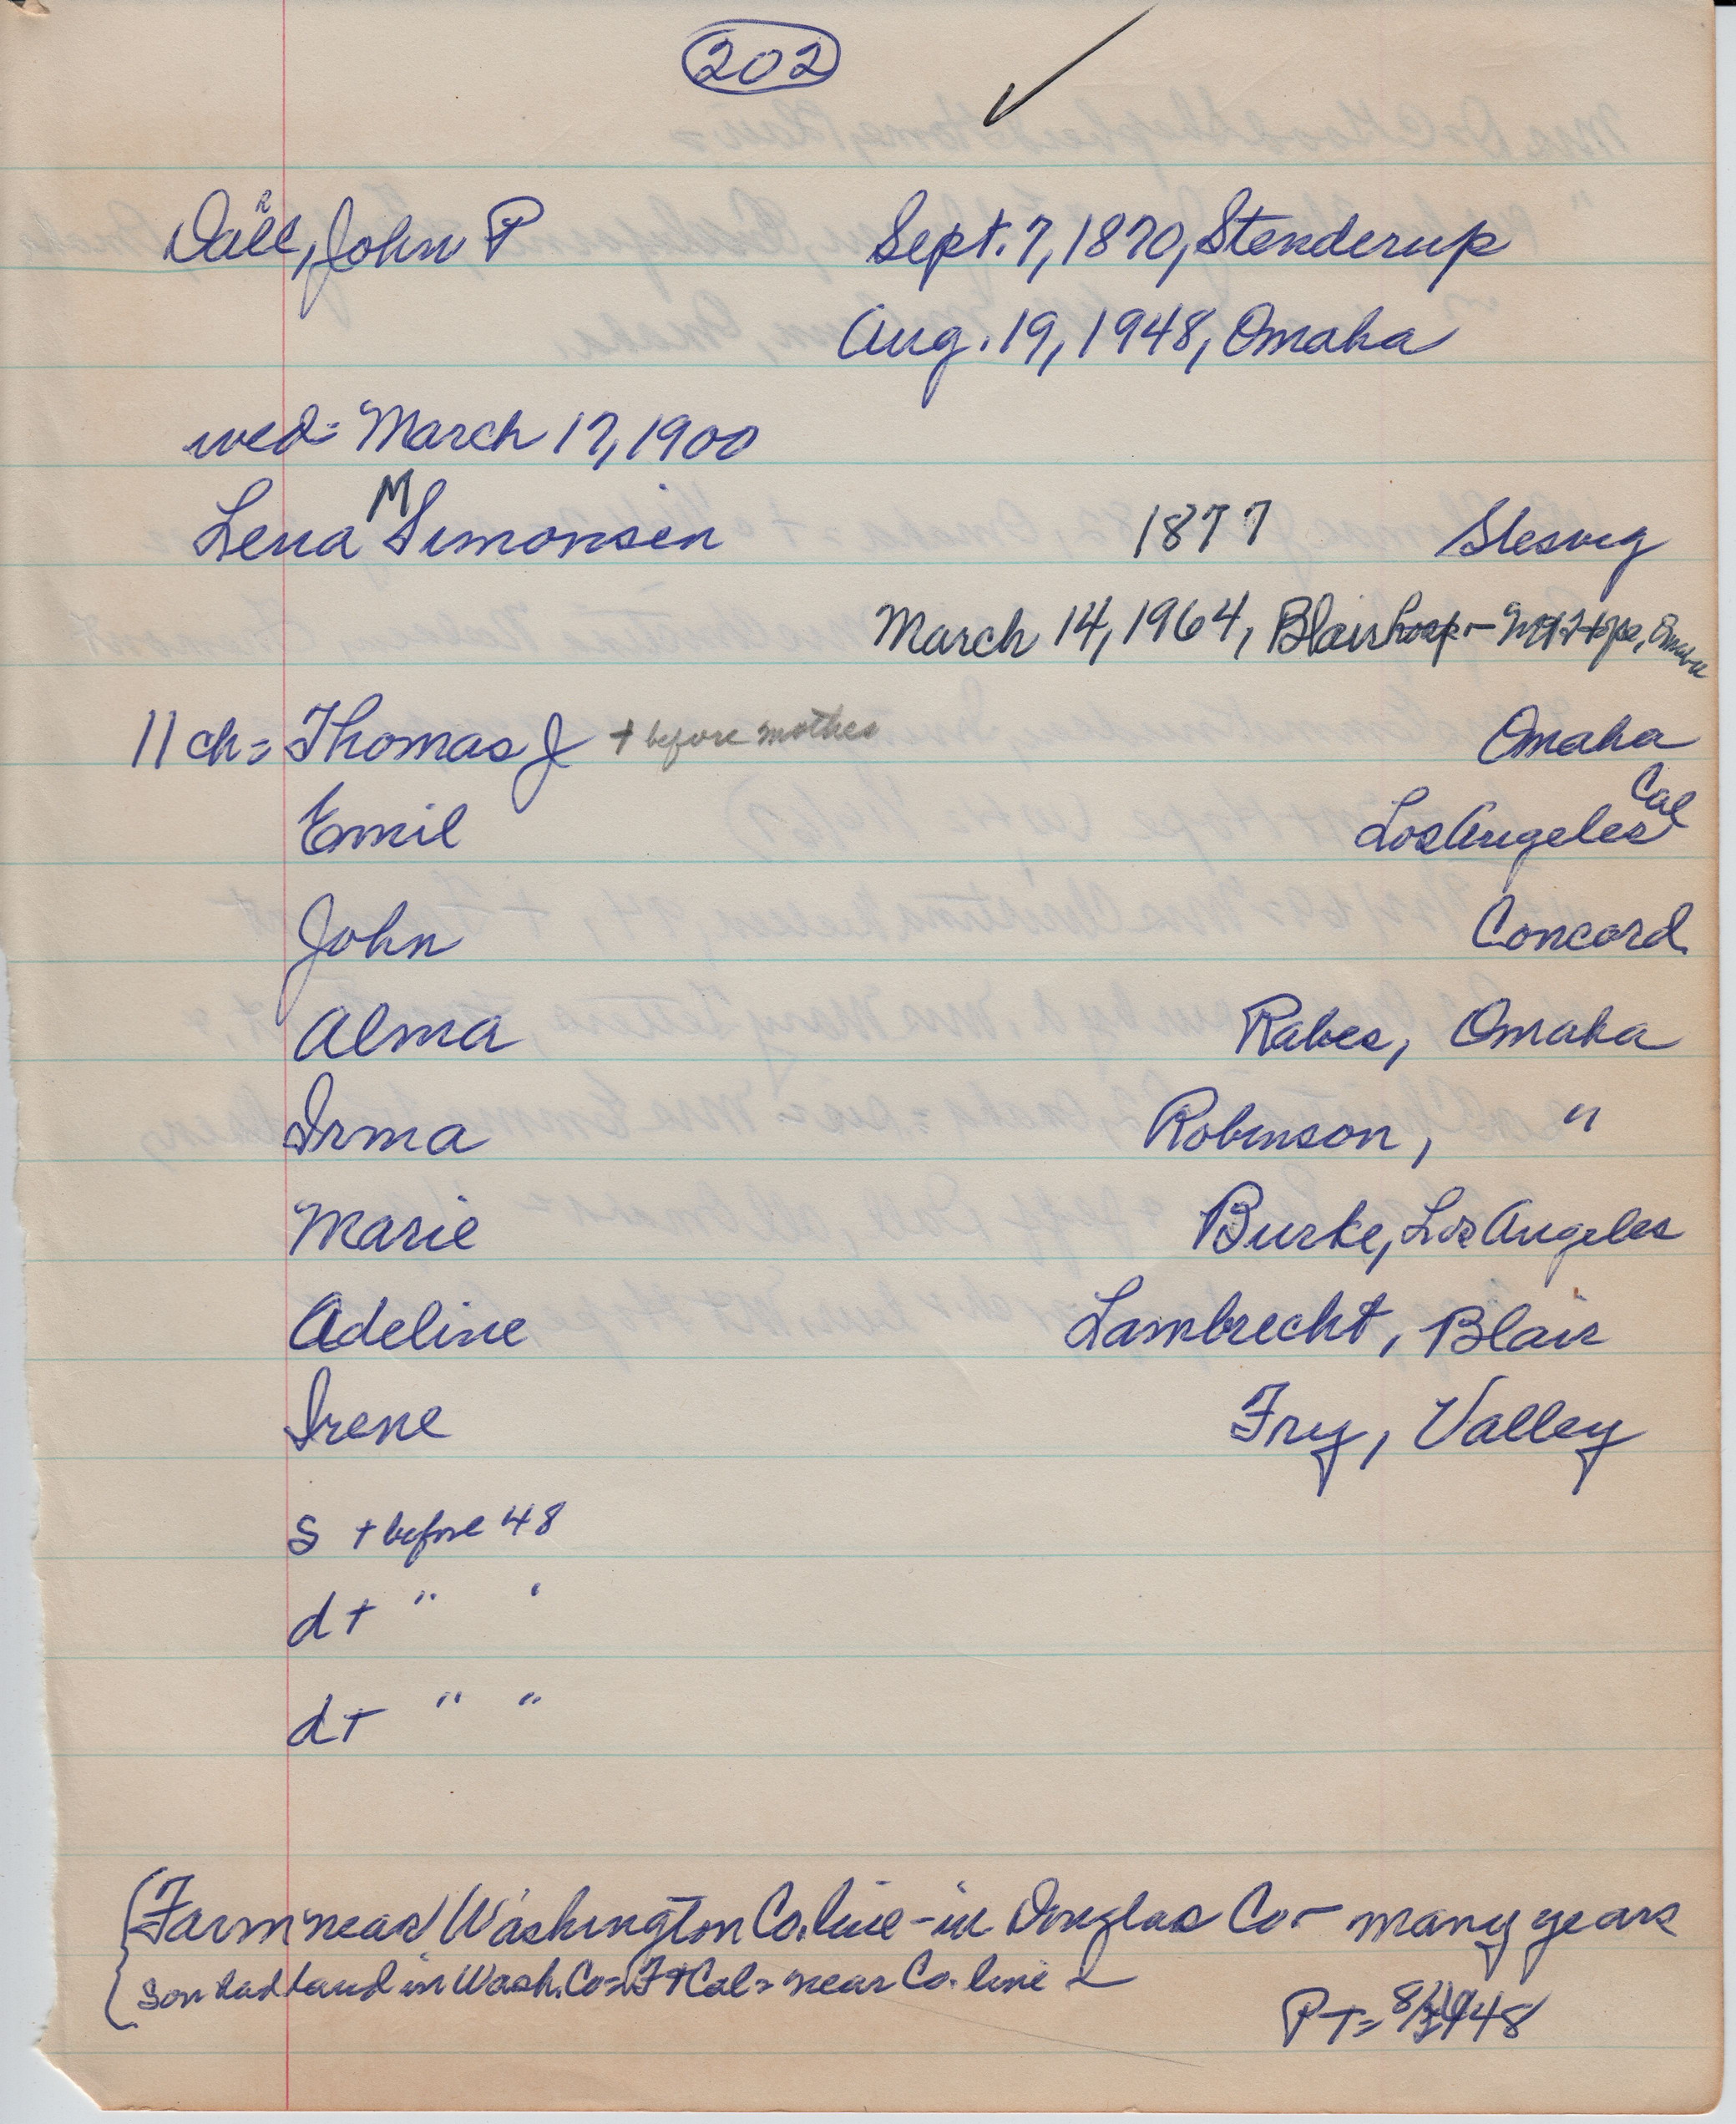 202
Däll, John P Sept. 7, 1870, Stenderup
Aug. 19, 1948, Omaha
wed- March 17, 1900
Lena M Simonsen 1877 Slesvig
March 14, 1964, Blair hosp - Mt Hope, Omaha
11 ch = Thomas J + before mother Omaha
Emil Los Angeles Cal
John Concord
Alma Rabes, Omaha
Irma Robinson, "
Marie Burke, Los Angeles
Adeline Lambrecht, Blair
Irene Fry, Valley
s + before 48
d + " "
d + " "
Farm near Washington Co. line - in Douglas Co - many years
Son had land in Wash. Co = near Co. line
PT = 48